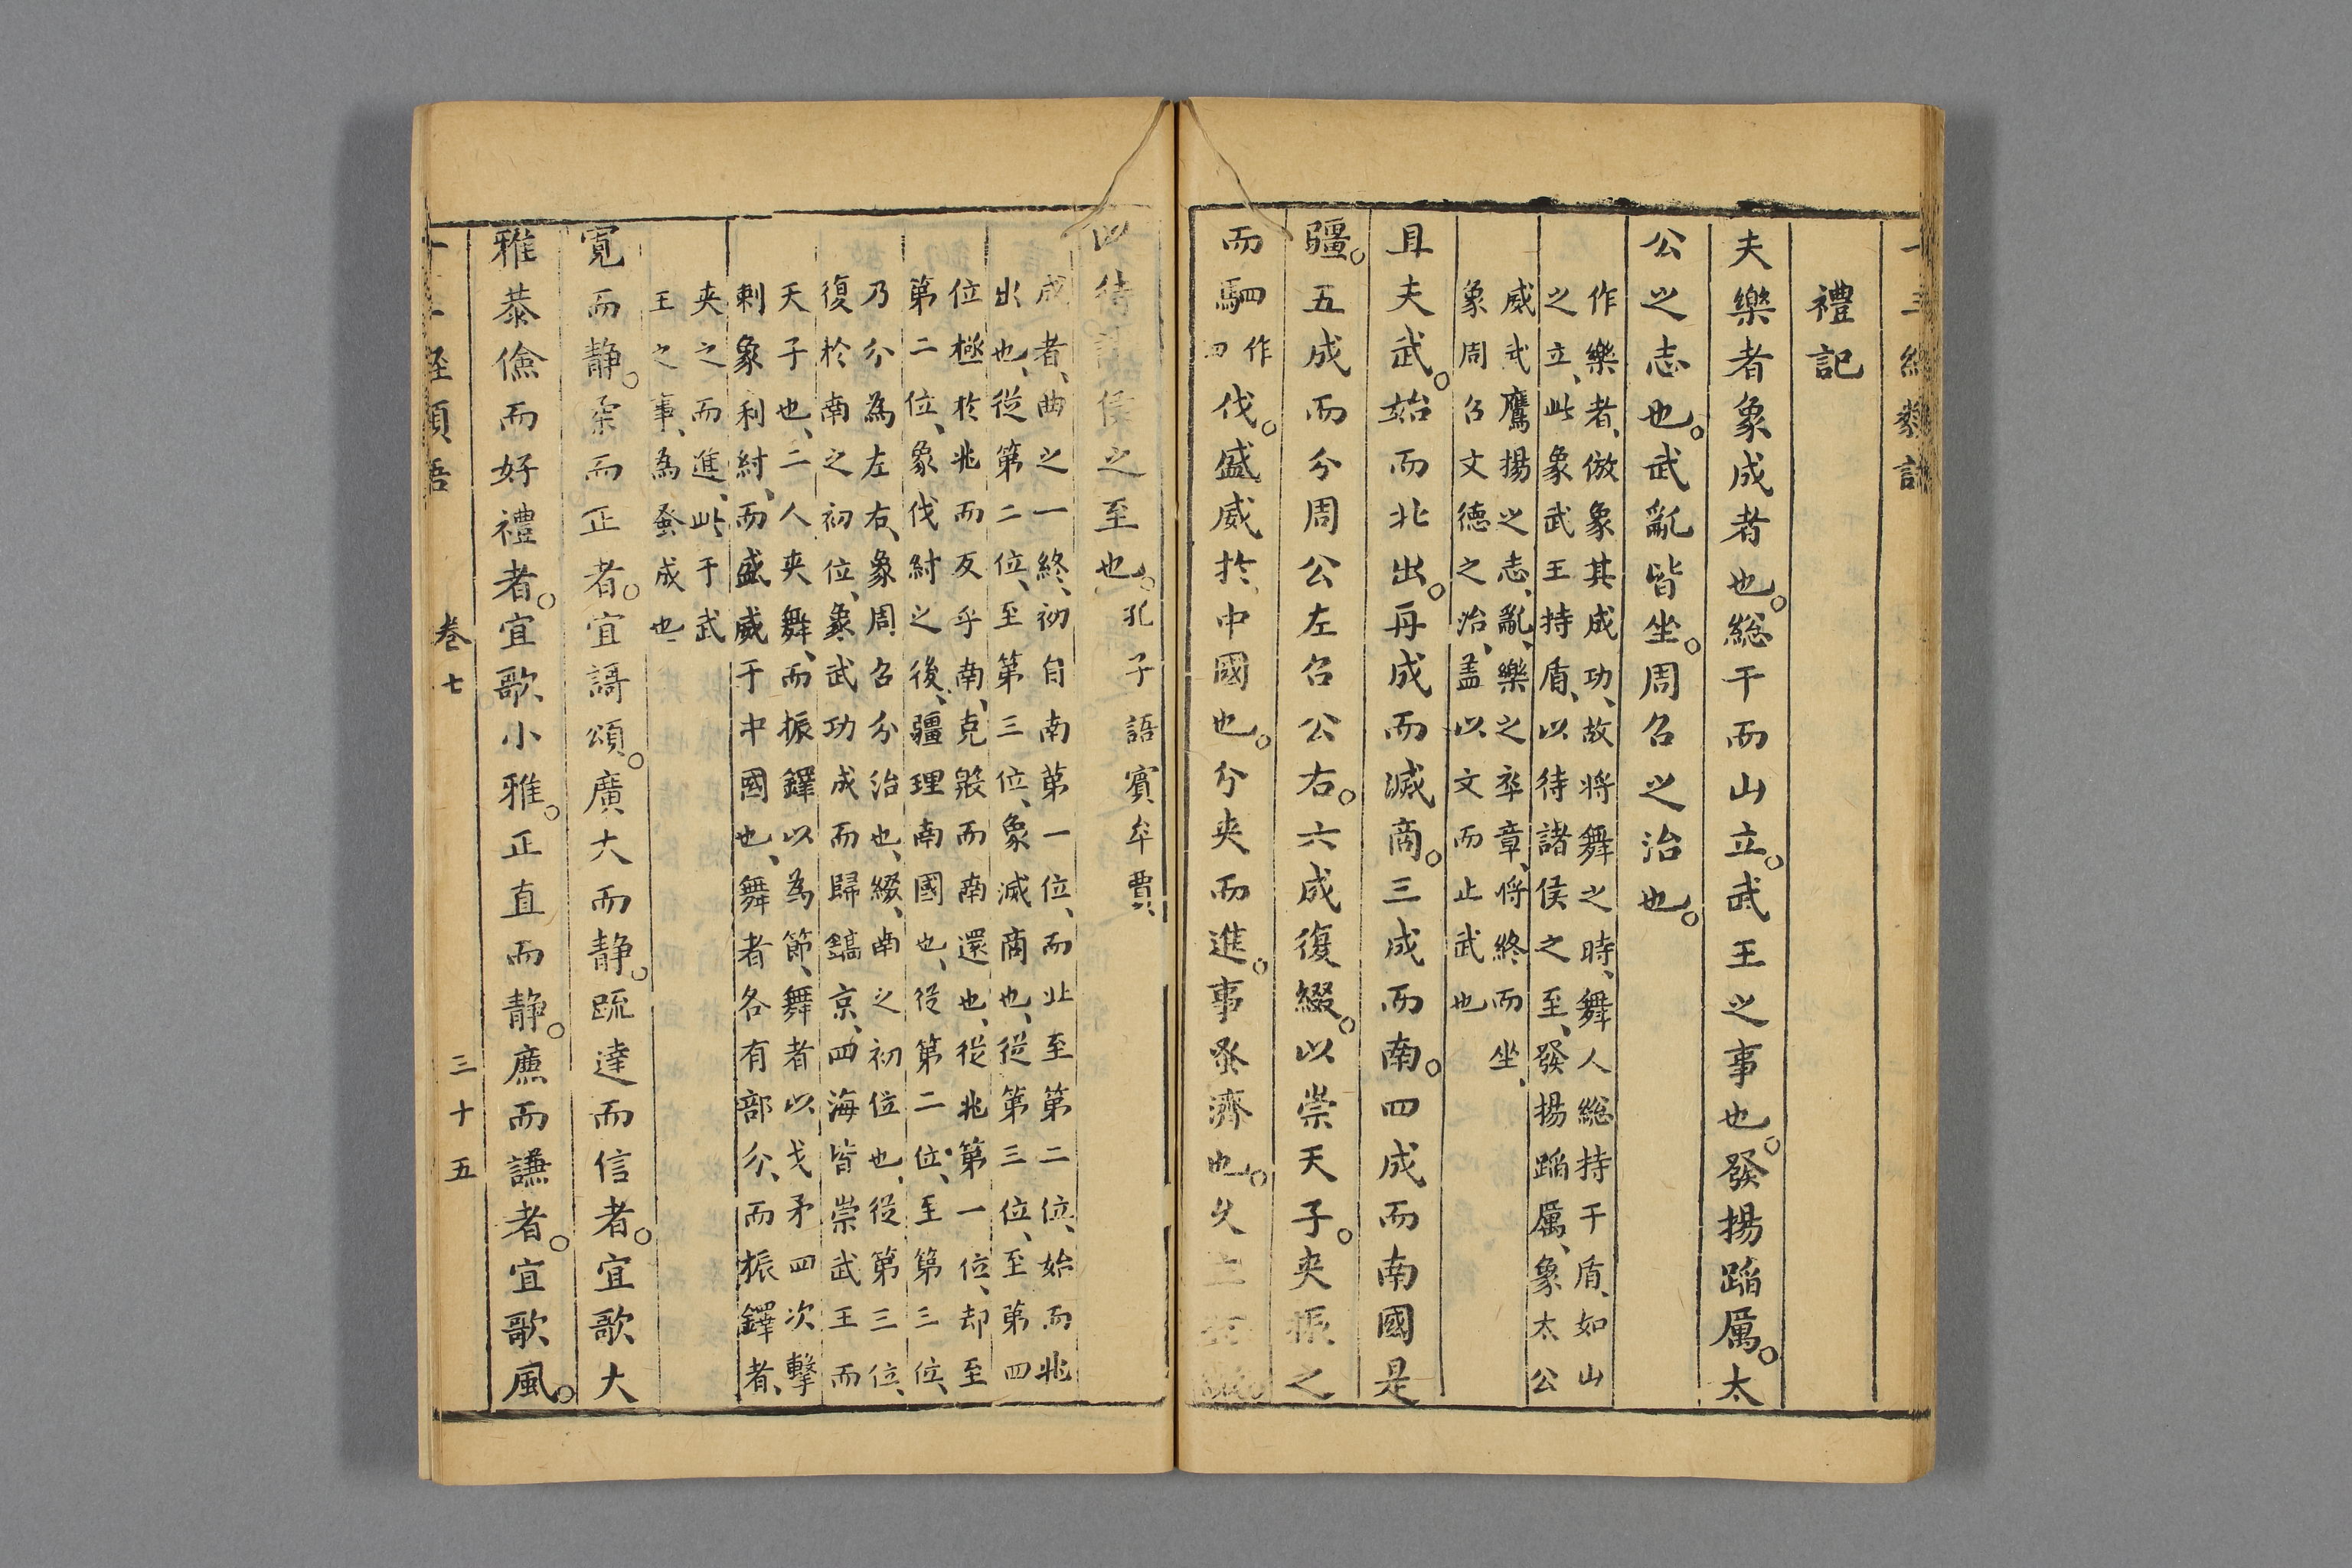 禮記
夫樂者象成者也。總干而山立。武王之事也。發揚蹈厲。太
公之志也。武亂皆坐。周召之治也。
作樂者、倣象其成功、故將舞之時、舞人総持干盾、如山
之立、此象武王持盾、以待諸侯之至、發揚蹈厲、象太公
威武鷹揚之志、亂、樂之卒章、將終而坐、
象周召文德之治、盖以文而止武也
且夫武。始而北出。再成而滅商。三成而南。四成而南國是
疆。五成而分周公左召公右。六成復綴。以崇天子。夾振之
而駟作四伐。盛威於中國也。分夾而進。事蚤濟也。久立於綴。
以待諸侯之至也。孔子語賓牟賈、
成者、曲之一終、初自南苐一位、而北至第二位、始而北
出也、從第二位、至第三位、象滅商也、從第三位、至第四
位極於北而反乎南、克殷而南還也、從北第一位、却至
第二位、象伐紂之後、疆理南國也、從第二位、至第三位、
乃分為左右、象周召分治也、綴、南之初位也、從第三位、
復於南之初位、象武功成而歸鎬京、四海皆崇武王而
天子也、二人夾舞、而振鐸以為節、舞者以戈矛四次擊
刺象利紂、而盛威于中國也、舞者各有部分、而振鐸者、
夾之而進、此于武
王之事、為蚤成也
寬而静。柔而正者。宜謌頌。廣大而静。疏達而信者。宜歌大
雅恭儉而好禮者。宜歌小雅。正直而静。廉而謙者。宜歌風。
卷七
三十五